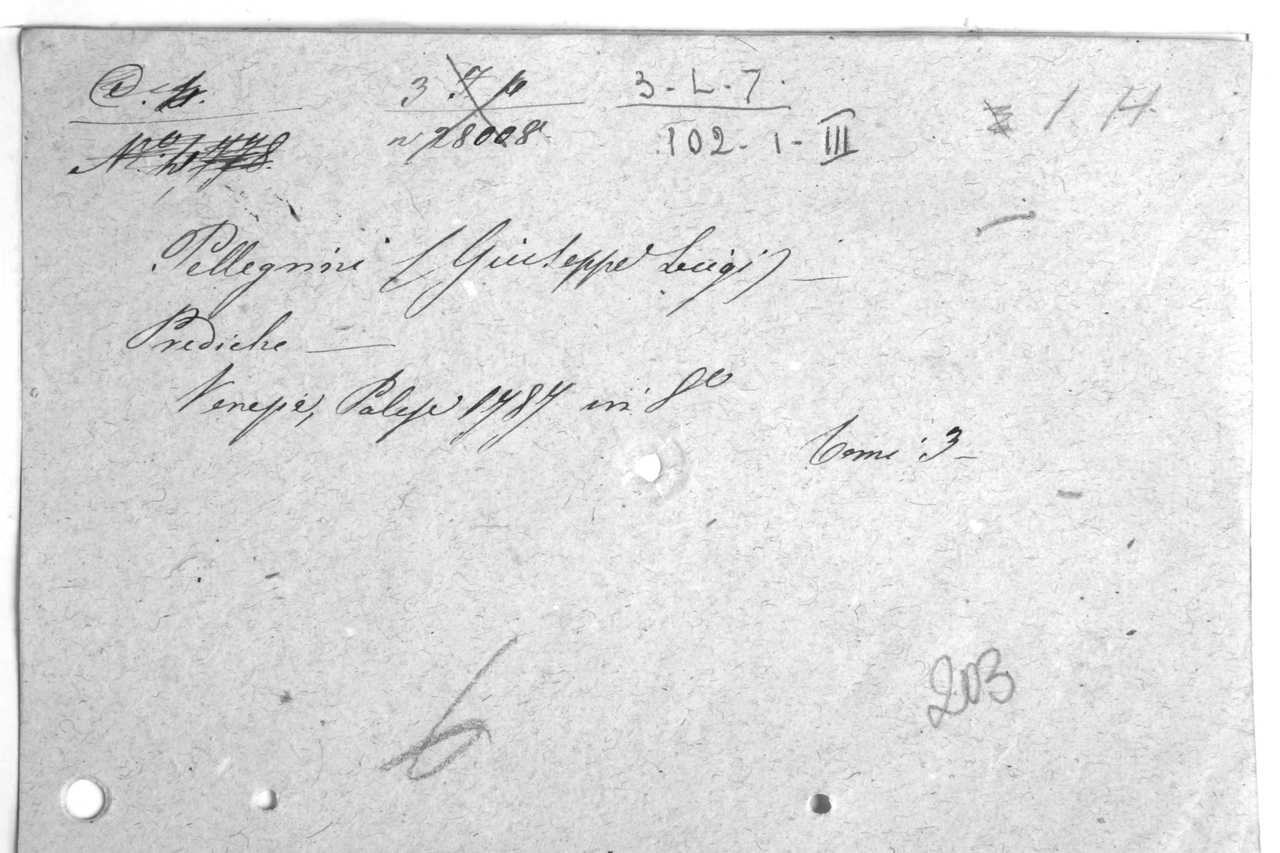 3-L-7.
n 28008
102-I-III
1. H
Pellegrini (Giuseppe Luigi) —
Prediche —
Venezia, Palese 1787 in 8o
Tomi 3 –
6
203